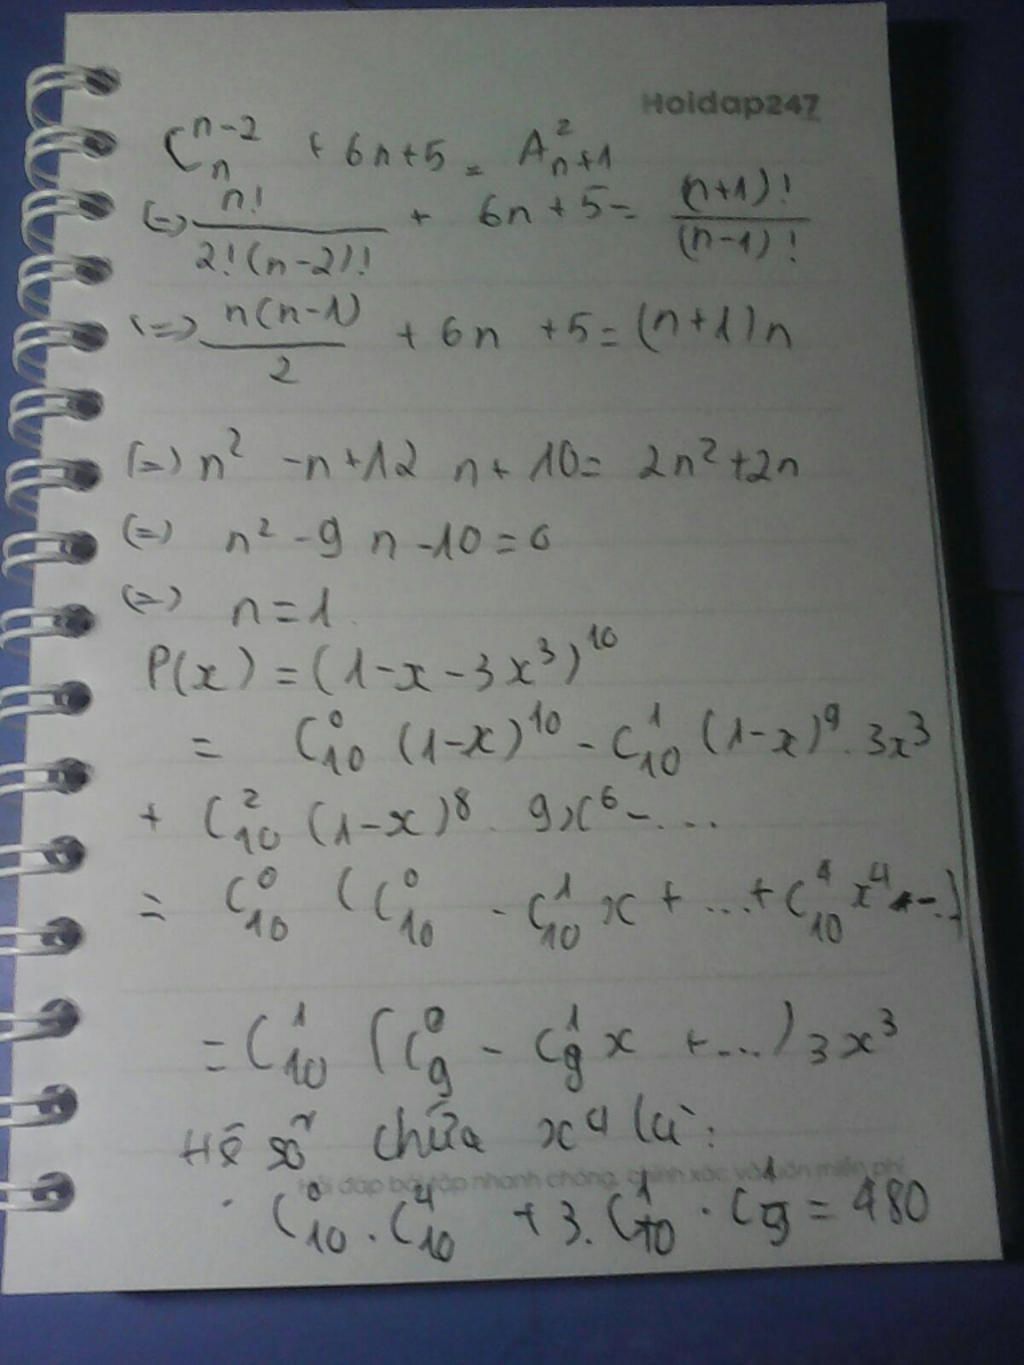 Hoidap247
C_n^{n-2} + 6n+5 = A_{n+1}^2
(=) n!/2!(n-2)! + 6n+5= (n+1)!/(n-1)!
(=) n(n-1)/2 + 6n +5=(n+1)n
(=) n² -n+12 n+ 10= 2n²+2n
(=) n² -9 n -10=0
(=) n=1
P(x) =(1-x-3x³)^{10}
= C_{10}^0 (1-x)^{10} - C_{10}^1 (1-x)^9 . 3x³
+ C_{10}^2 (1-x)^8 . 9x^6 -....
= C_{10}^0 (C_{10}^0 - C_{10}^1 x + ...+ C_{10}^4 x^4 ...)
= C_{10}^1 (C_9^0 - C_9^1 x +...) 3x³
Hệ số chứa x^4 là:
Hỏi đáp bài tập nhanh chóng, chính xác và luôn miễn phí
C_{10}^0 . C_{10}^4 + 3. C_{10}^1 . C_9^1 = 480